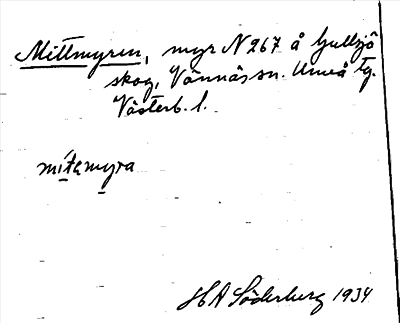 Mittmyren, myr N 267 å Gullsjö
skog, Vännäs sn. Umeå tg.
Västerb. l.
mítamyra
H A Söderberg 1934